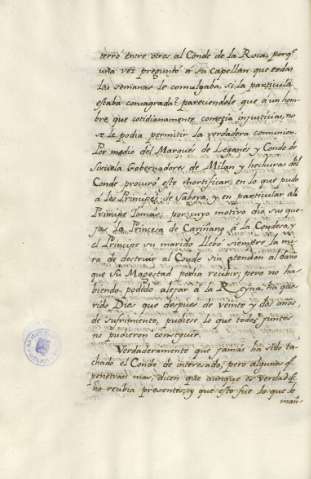 terrò entre otros al Conde de la Roca, porq.
una vez preguntò à su Capellan que todas
las semanas le comulgaba, si la particula
estaba consagrada? pareciendole que à un hom-
bre que cotidianamente cometia injusticias, no
se le podia permitir la verdadera comunion.
Por medio del Marques de Leganès y Conde de
Siruela Gobernadores de Milan y hechuras del
Conde procurò este mortificar en lo que pudo
à los Principes de Saboya, y en particular al
Principe Tomas; por cuyo motivo dio sus que-
jas la Princesa de Cariñano à la Condesa, y
el Principe su marido llebò siempre la mi-
ra de destruir al Conde sin atender al daño
que Su Magestad podia recibir; pero no ha-
biendo podido alejar à la Reyna, ha que-
rido Dios que despues de veinte y dos años
de sufrimiento, pudiese lo que todos juntos
no pudieron conseguir.
Verdaderamente que jamas ha sido ta-
chado el Conde de interesado, pero algunos q.
penetran mas, dicen que aunque es verdad q.
no recibia presentes, y que esto fue lo que le
man-